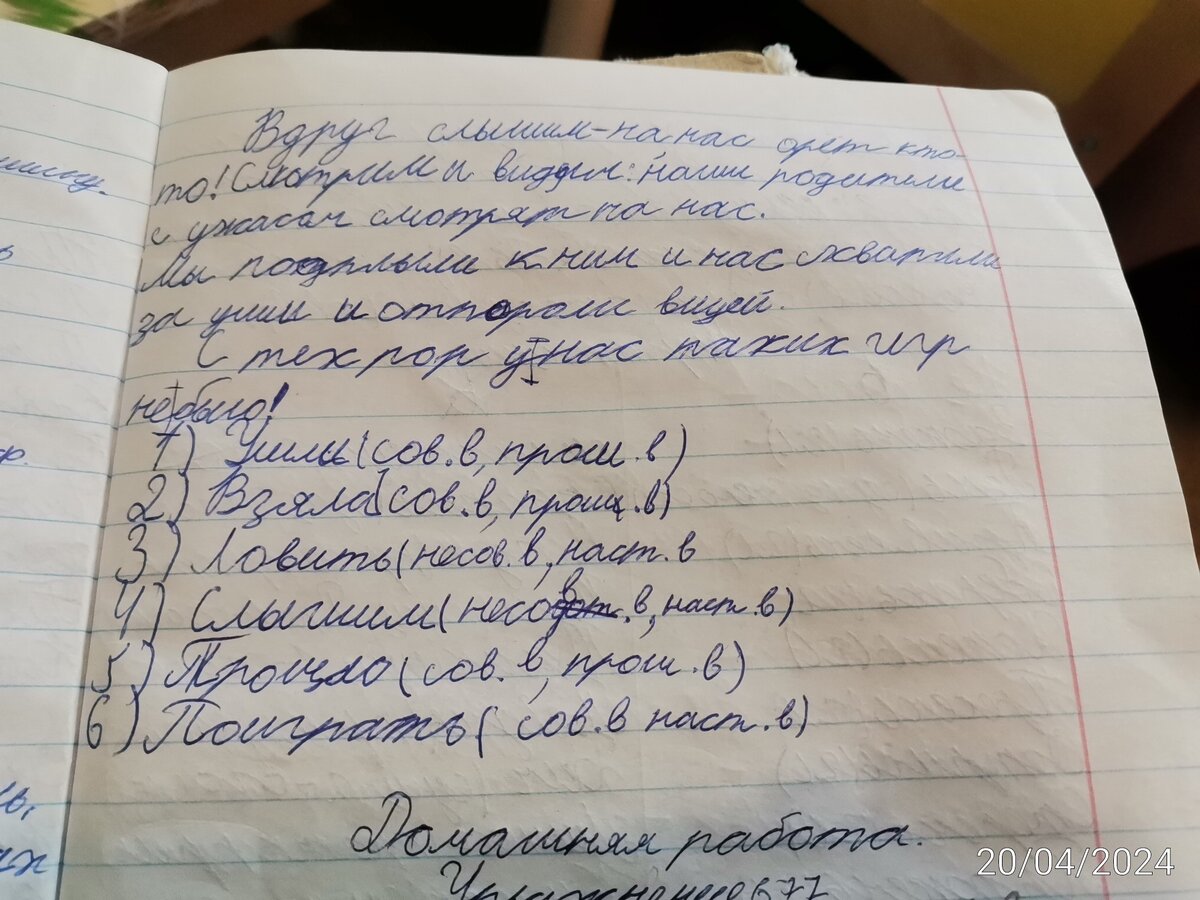 Вдруг слышим-на нас орет кто-
то! Смотрим и видим: наши родители
с ужасом смотрят на нас.
Мы подплыли к ним и нас схватили
за уши и отпороли вицей.
С тех пор у нас таких игр
не было!
1) Ушли (сов.в, прош.в)
2) Взяла (сов.в, прош.в)
3) Ловить (несов.в, наст.в
4) Слышим (несов.в, наст.в)
5) Прошло (сов.в, прош.в)
6) Поиграть (сов.в наст.в)
Домашняя работа.
Упражнение 677
20/04/2024